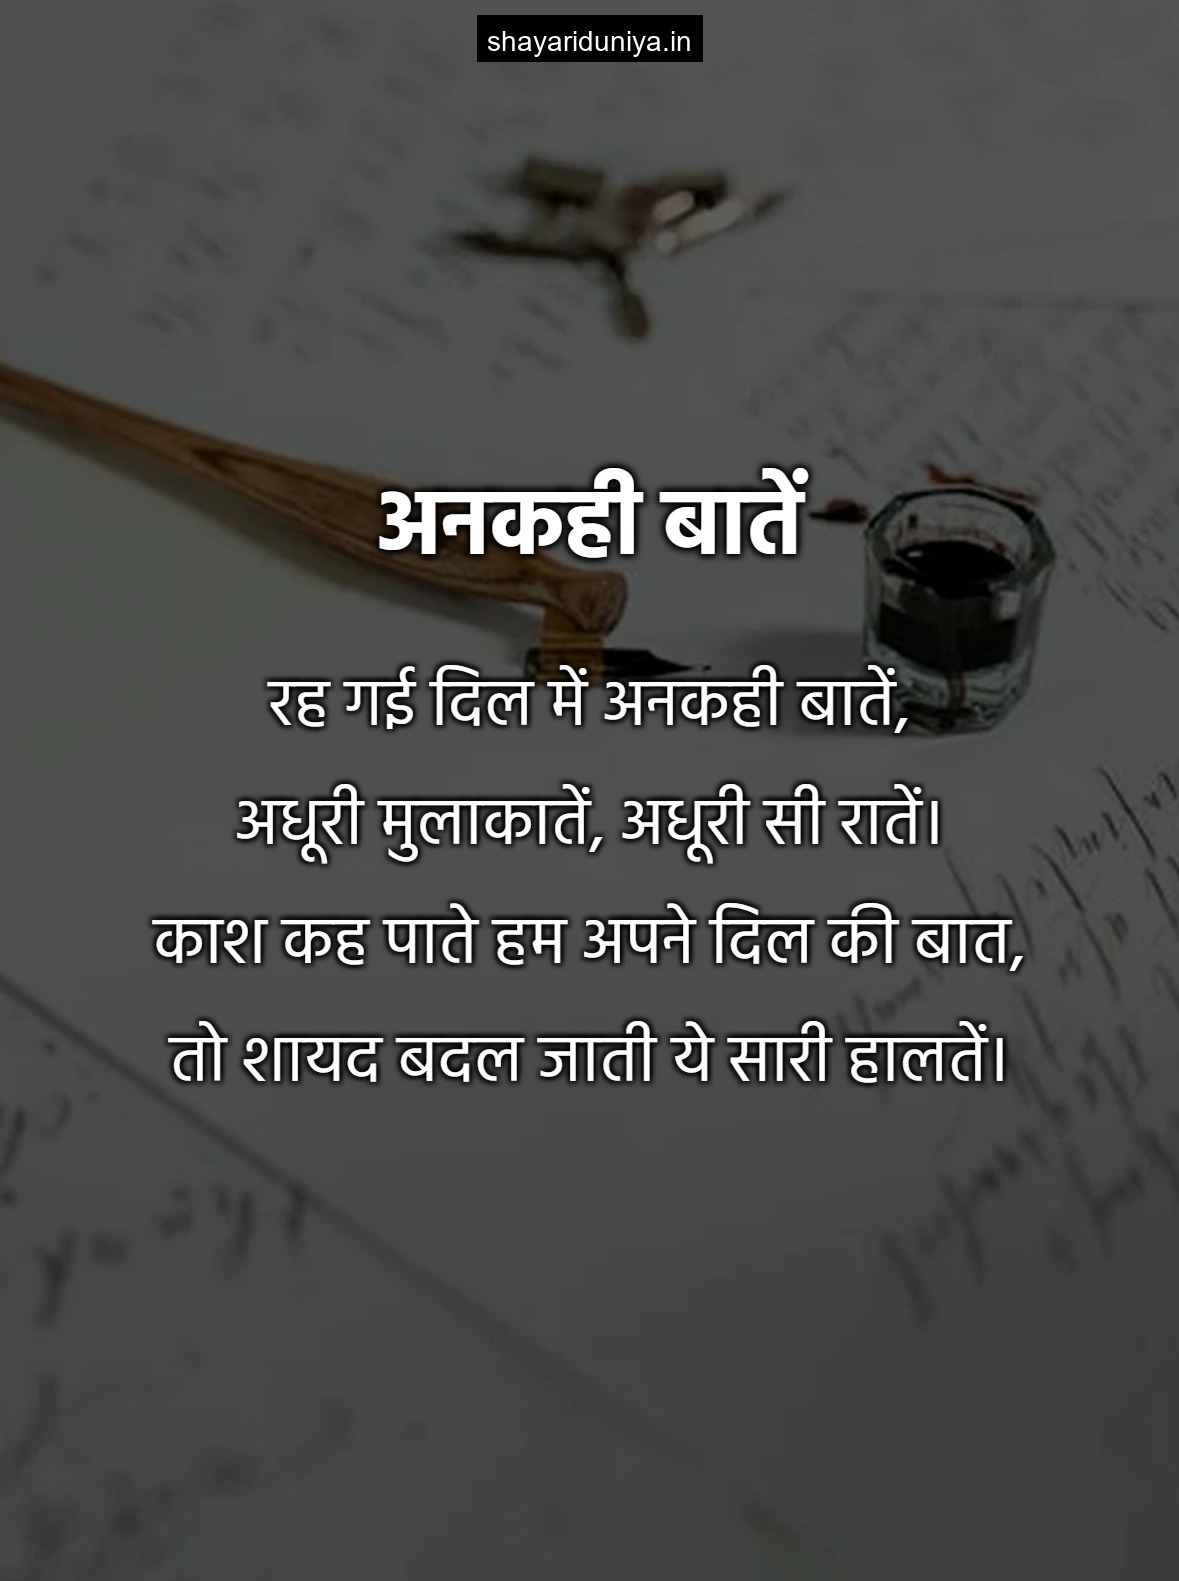 shayariduniya.in
अनकही बातें
रह गई दिल में अनकही बातें,
अधूरी मुलाकातें, अधूरी सी रातें।
काश कह पाते हम अपने दिल की बात,
तो शायद बदल जाती ये सारी हालतें।